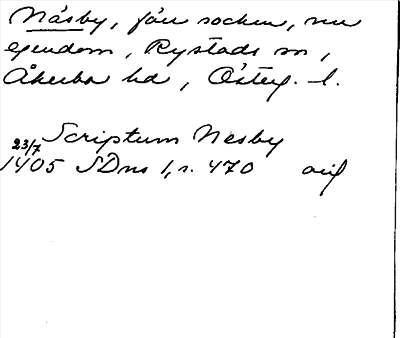 Näsby, förr socken, nu
egendom, Rystads sn,
Åkerbo hd, Österg. l.
Scriptum Nesby
23/7
1405 SDns 1, s. 470 avif